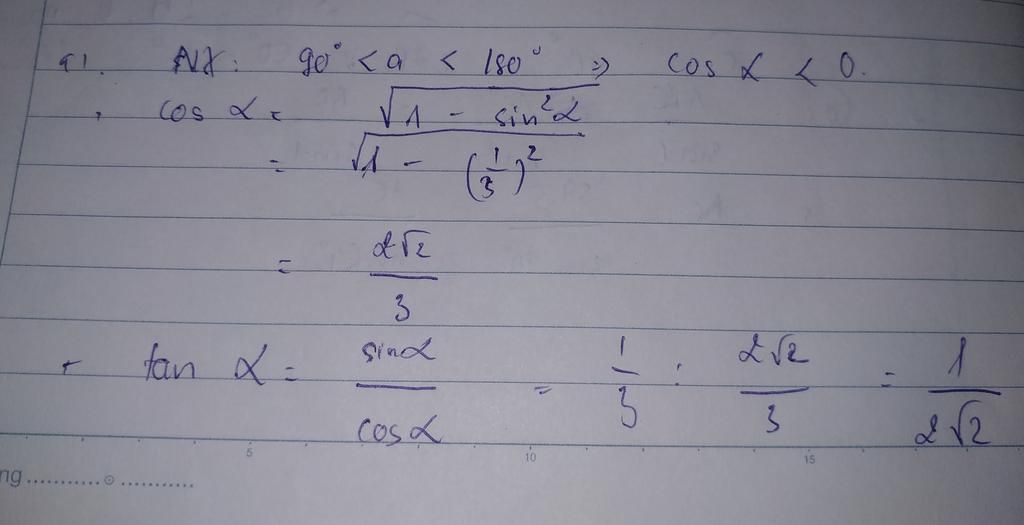 a). NX: 90° < a < 180° => cos α < 0.
+ cos α = √(1 - sin²α)
= √(1 - (1/3)²)
= 2√2/3
+ tan α = sinα/cosα = 1/3 : 2√2/3 = 1/2√2
5 10 15
ng